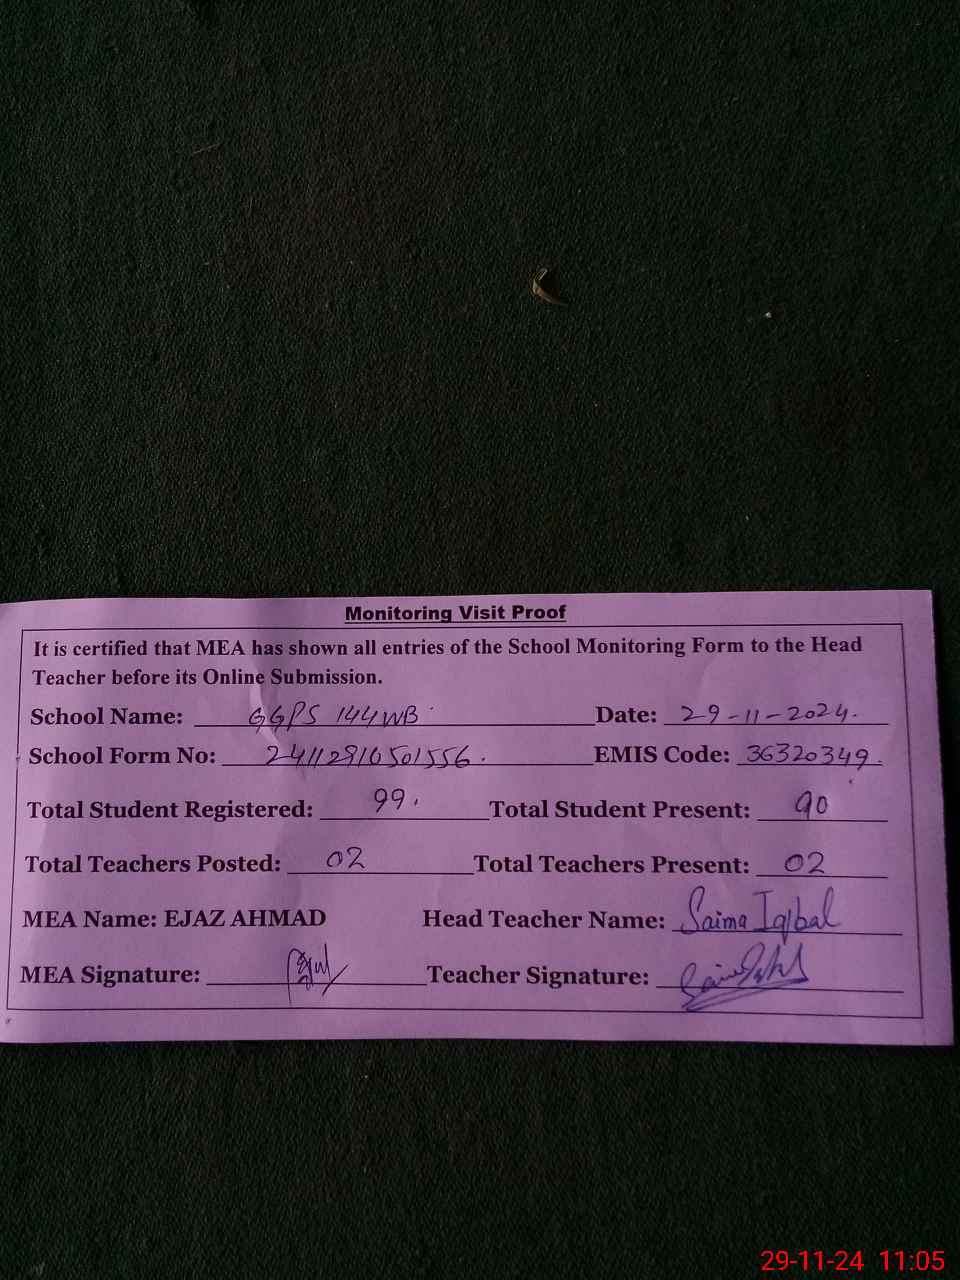 Monitoring Visit Proof
It is certified that MEA has shown all entries of the School Monitoring Form to the Head
Teacher before its Online Submission.
School Name: GGPS 144WB Date: 29-11-2024.
School Form No: 24112910501556. EMIS Code: 36320349.
Total Student Registered: 99. Total Student Present: 90
Total Teachers Posted: 02 Total Teachers Present: 02
MEA Name: EJAZ AHMAD Head Teacher Name: Saima Iqbal
MEA Signature: Teacher Signature:
29-11-24 11:05